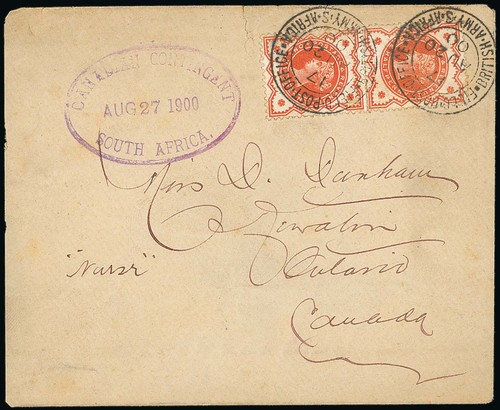 CANADIAN CONTINGENT
AUG 27 1900
SOUTH AFRICA.
FIELD POST OFFICE BRITISH ARMY S. AFRICA
AU 20
00
FIELD POST OFFICE BRITISH ARMY S. AFRICA
Miss D. Dunham
Ontario
Canada
"Nurse"